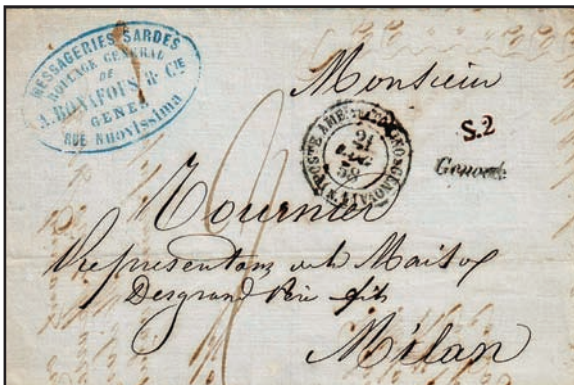 MESSAGERIES SARDES
ROULAGE GENERAL
DE
A. BONAFOUS & CIE
GENES
RUE Nuovissima
Monsieur
S.2
21
58
Tournier
de la Maison
Desgrand Père & fils
Milan